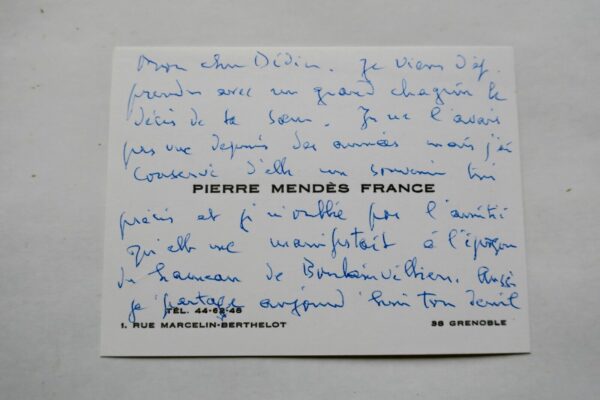 Mon cher Didier. Je viens d'ap
prendre avec un grand chagrin le
décès de ta sœur. Je ne l'avais
pas vue depuis des années mais j'ai
conservé d'elle un souvenir très
PIERRE MENDÈS FRANCE
précis et je n'oublie pas l'amitié
qu'elle me manifestait à l'époque
du hameau de Boulainvilliers. Aussi
je partage aujourd'hui ton deuil
TÉL. 44-62-48
1, RUE MARCELIN-BERTHELOT 38 GRENOBLE